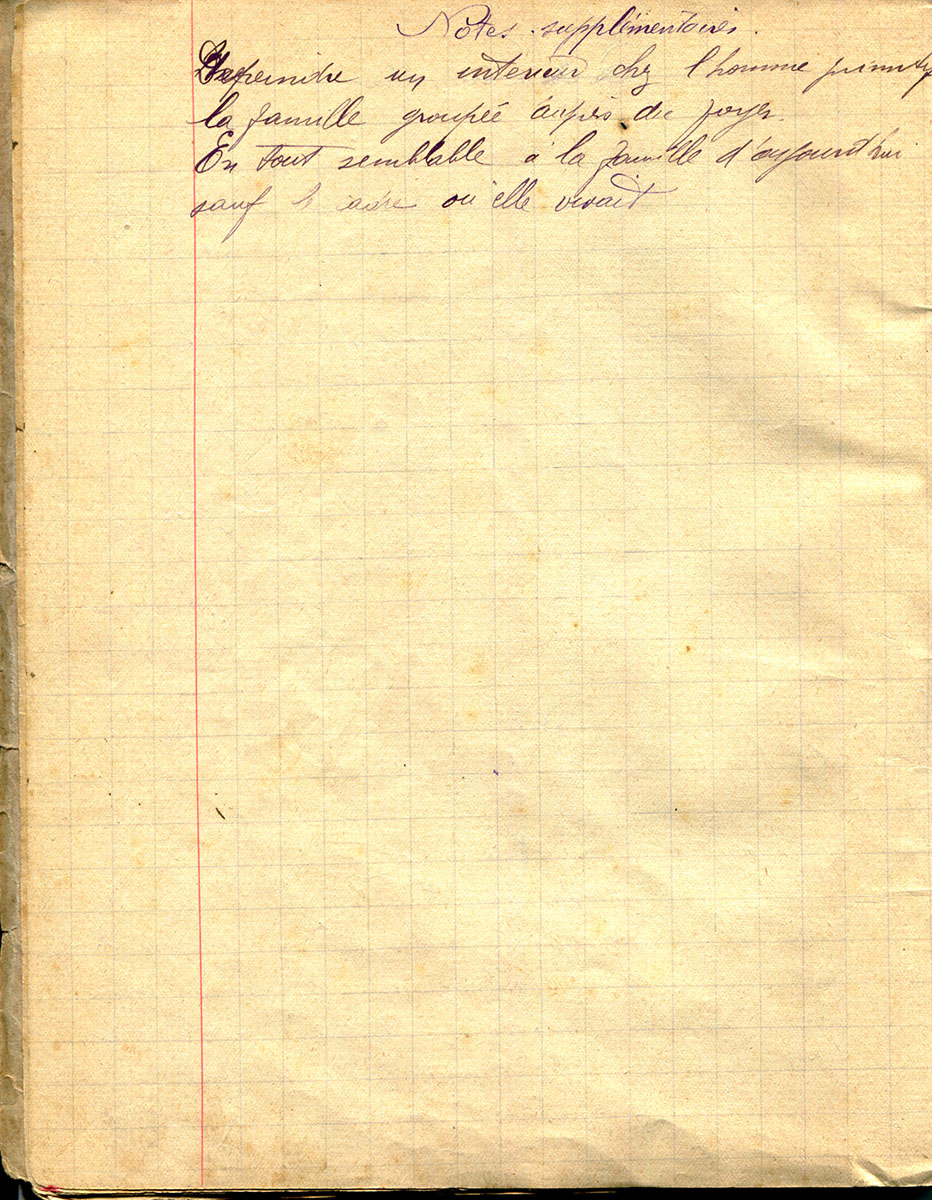 Notes supplémentaires.
Dépeindre un interieur chez l'homme primitif
la famille groupée auprès du foyer.
En tout semblable à la famille d'aujourd'hui
sauf le cadre où elle vivait